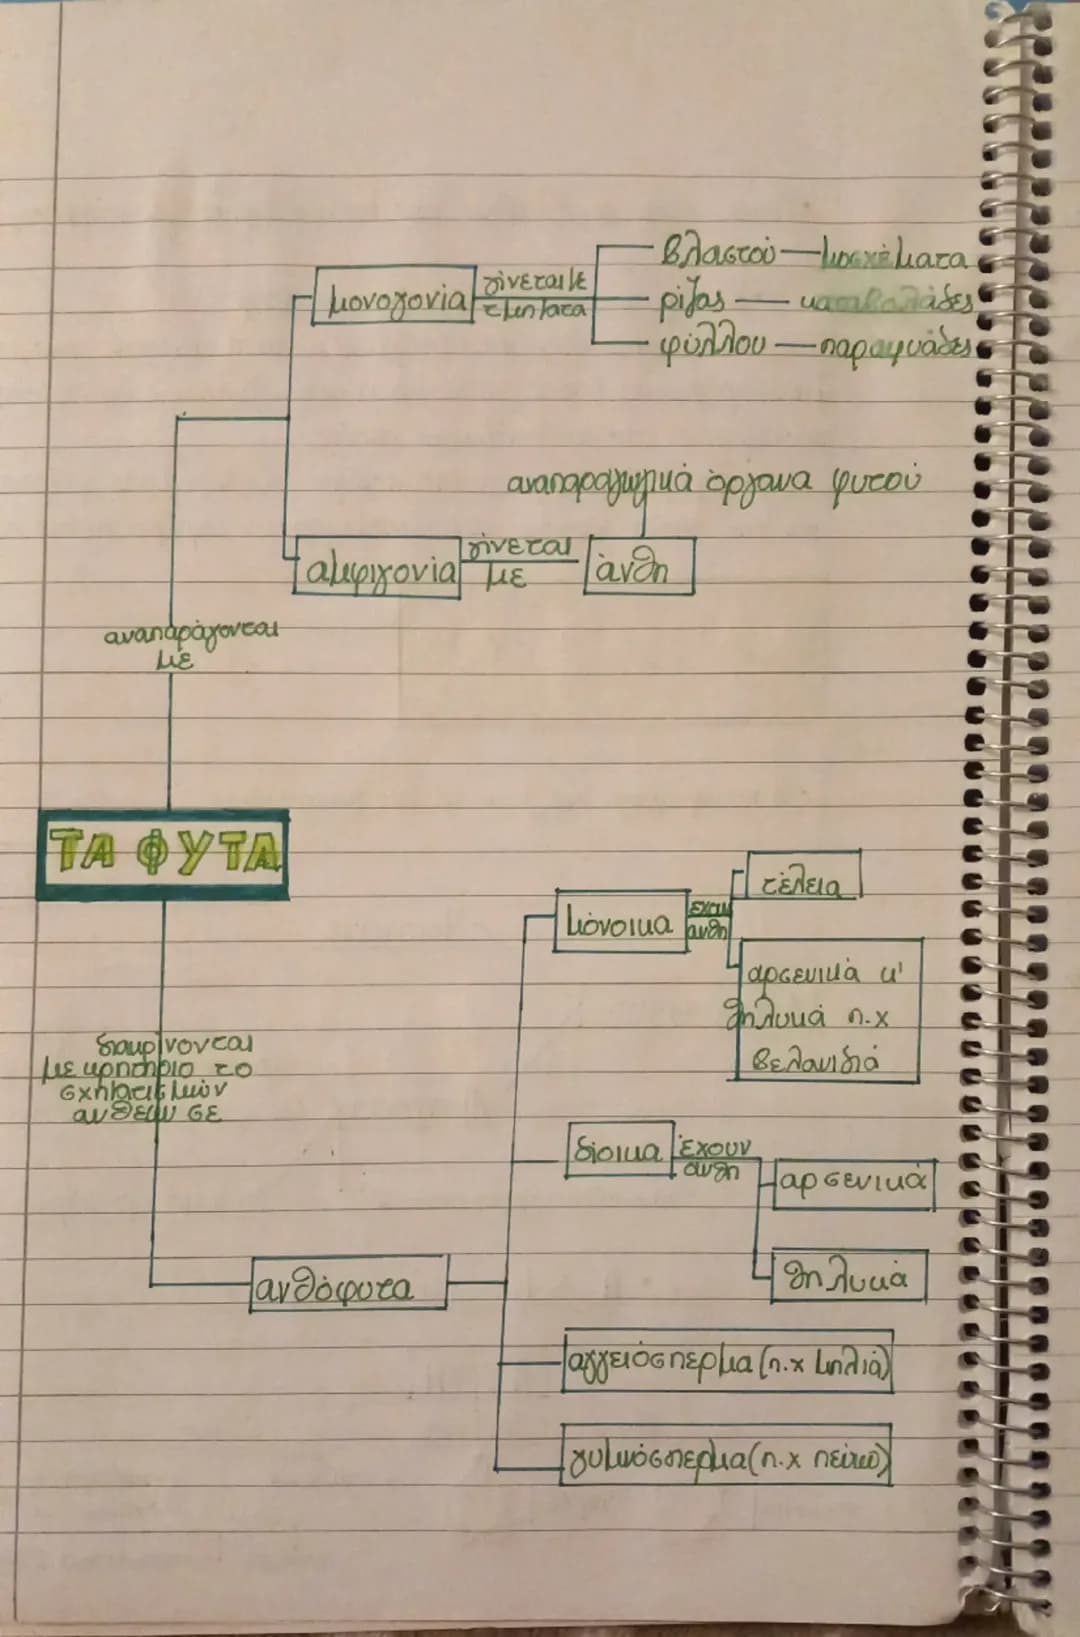 βλαστού — μοσχεύματα
μονογονία γίνεται με
τμήματα
ρίζας — καταβολάδες
φύλλου — παραφυάδες
αναπαραγωγικά όργανα φυτού
αμφιγονία γίνεται
με
άνθη
αναπαράγονται
με
ΤΑ ΦΥΤΑ
τέλεια
μόνοικα έχουν
άνθη
αρσενικά κ'
θηλυκά π.χ
βελανιδιά
διακρίνονται
με κριτήριο το
ανθέων σε
δίοικα έχουν
άνθη
αρσενικά
θηλυκά
ανθόφυτα
αγγειόσπερμα (π.χ μηλιά)
γυμνόσπερμα (π.χ πεύκο)